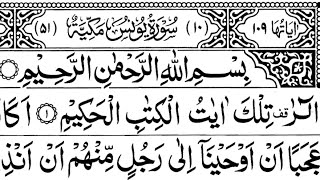 اٰيَاتُهَا ١٠٩ (١٠) سُوْرَةُ يُوْنُسَ مَكِّيَّةٌ (٥١)
بِسْمِ اللّٰهِ الرَّحْمٰنِ الرَّحِيْمِ
الٓرٰ ۫ تِلْكَ اٰيٰتُ الْكِتٰبِ الْحَكِيْمِ ١ اَكَانَ
عَجَبًا اَنْ اَوْحَيْنَآ اِلٰى رَجُلٍ مِّنْهُمْ اَنْ اَنْذِ